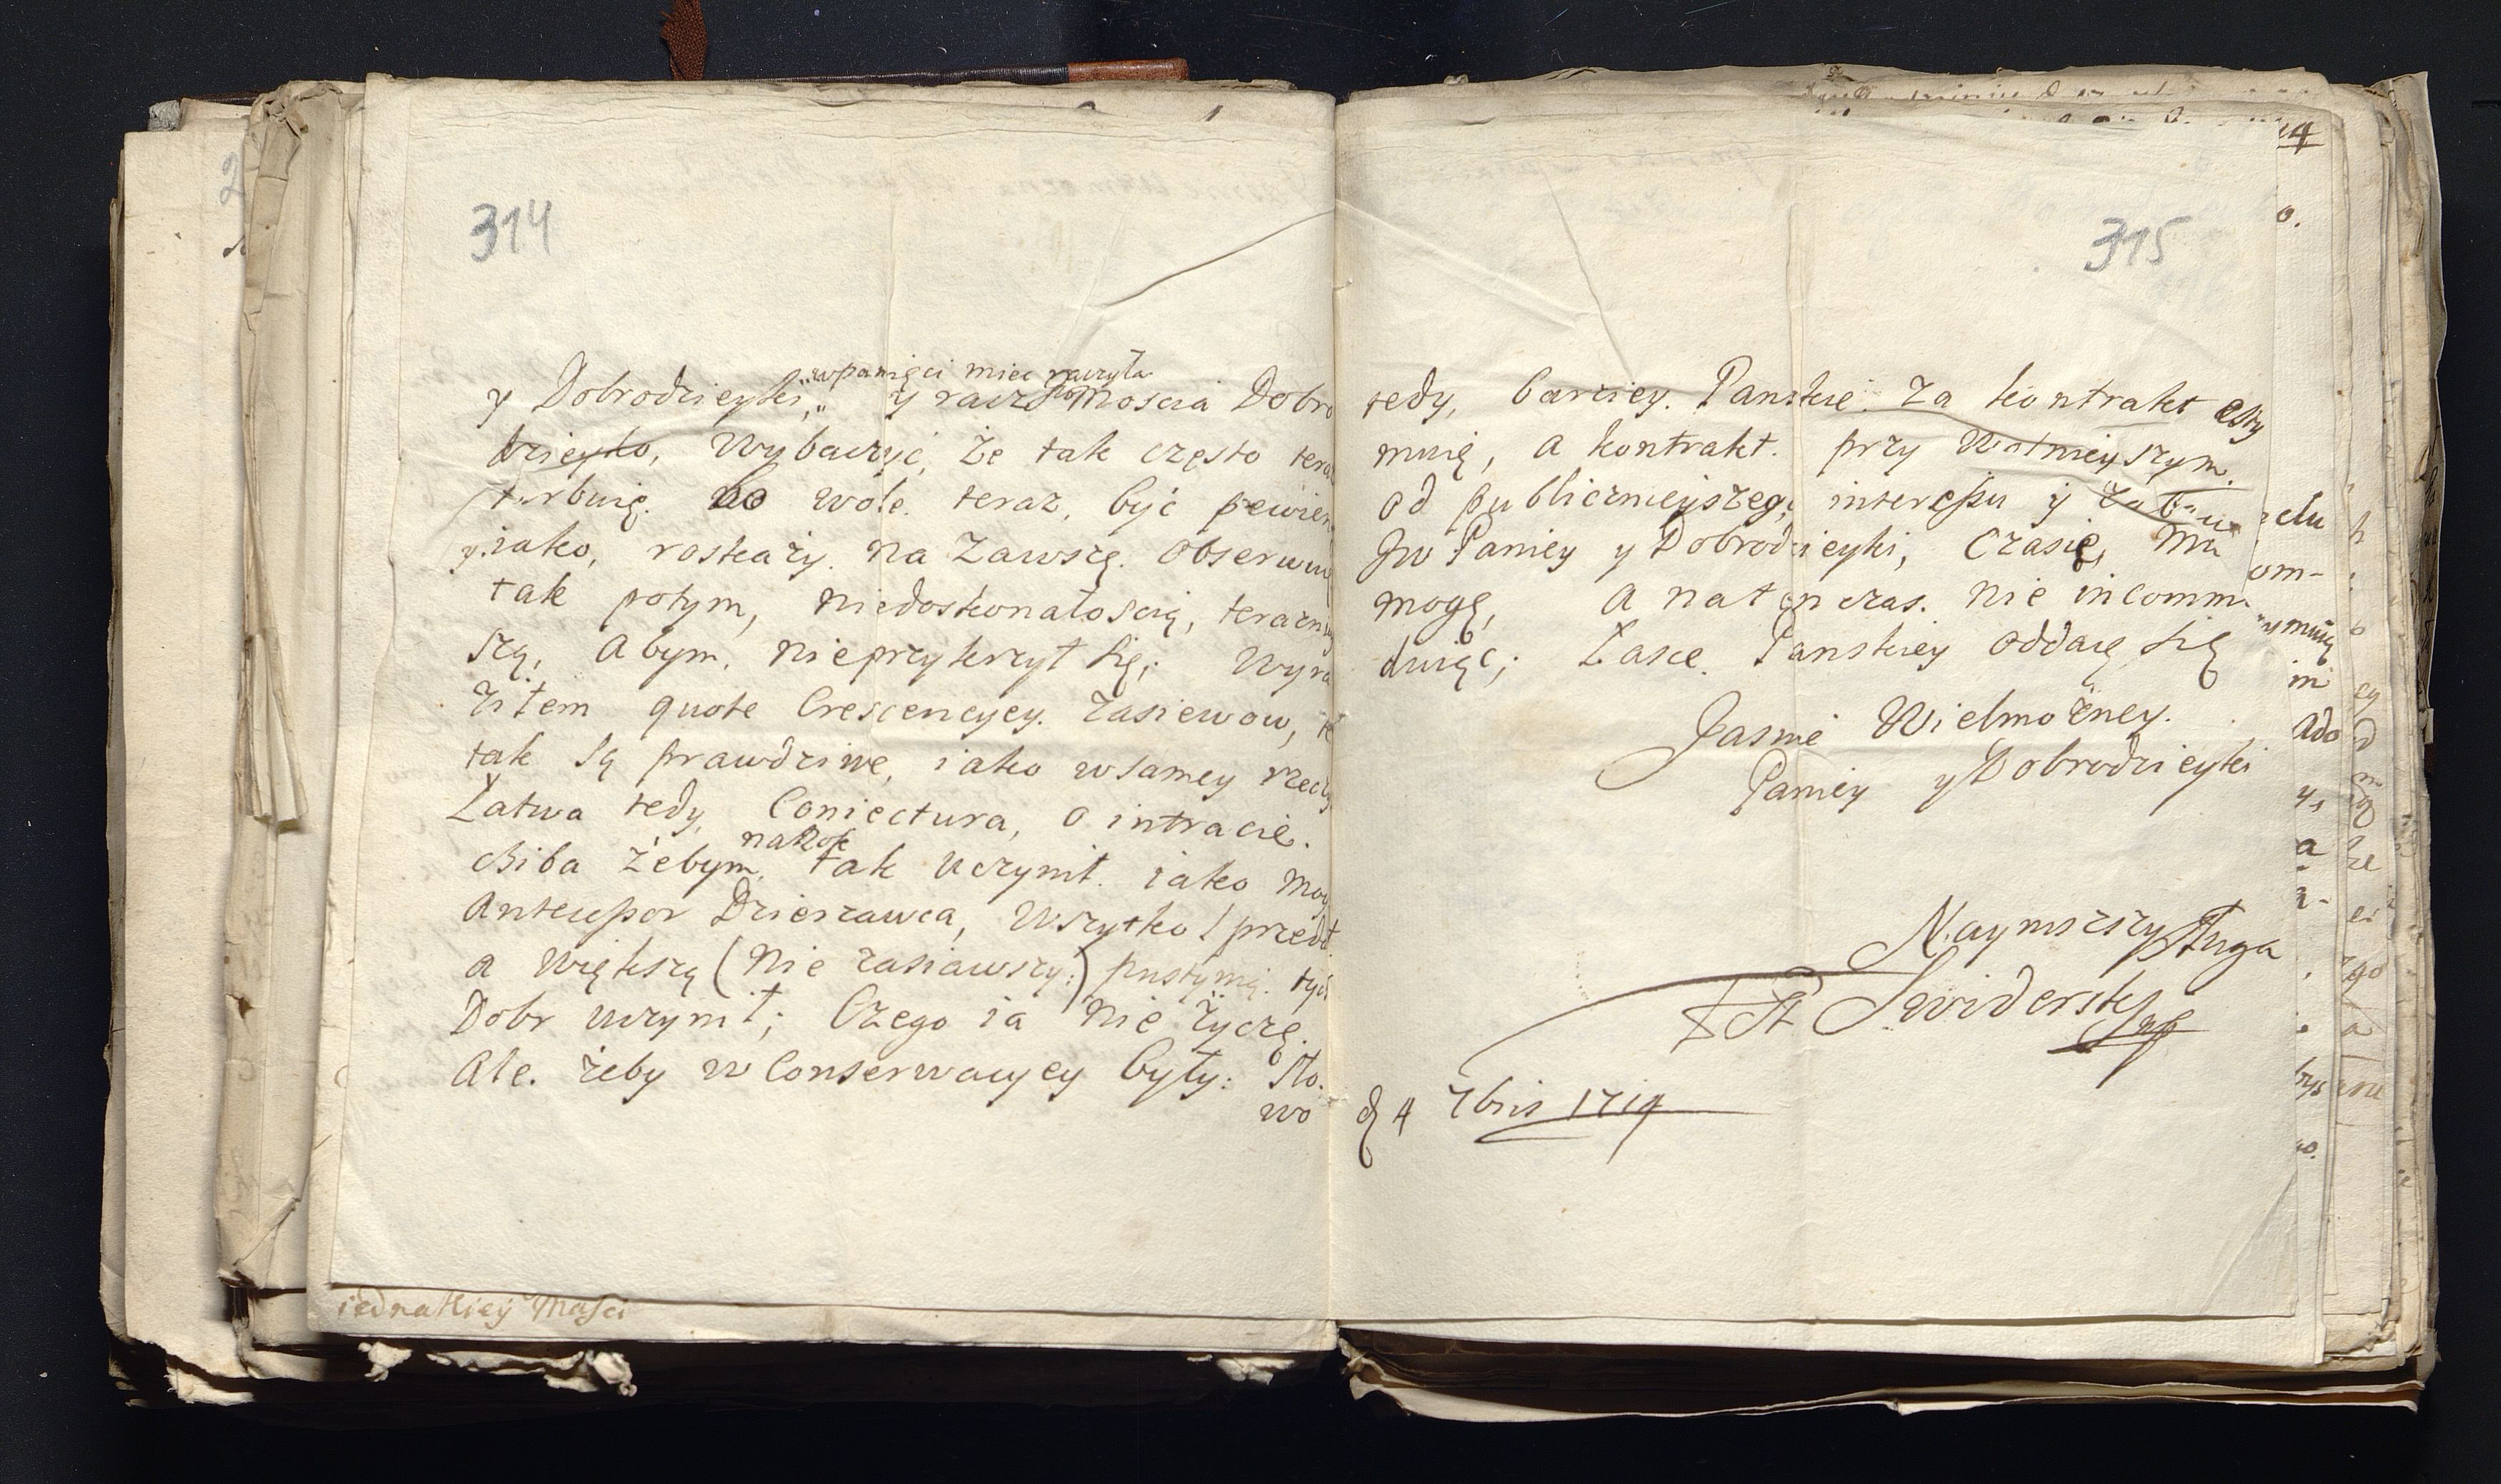 314
w pamięci mieć raczyła
y Dobrodzieyki, y racz Mościa Dobro
dzieyko, Wybaczyć, że tak często teraz
turbuię. bo wolę. teraz, być pewien
y iako, roskaży. na Zawszę. Obserwu
tak potym, niedoskonałością, teraźniey
szą, Abym, nieprzykrzył się; Wyra
ziłem quote Crescencyey. zasiewow, 
tak są prawdziwe, iako w samey rzeczy
Łatwa tedy, Coniectura, o intracie.
na Rok
chiba żebym, tak uczynił. iako moy
Antecessor Dzierzawca, Wszytko przedał
a większą (nie zasiawszy:) pustynią. tych
Dobr uczynił; Czego ia nie życzę.
Ale. żeby w Conserwacyey były: Sło.
wo
iednakiey Maści
315
tedy, barziey. Panskie. Za kontrakt esty
muię, a kontrakt. przy Wolnieyszym.
od publicznieyszego, interessu y Zabaw
Jw Paniey y Dobrodzieyki, Czasie, 
mogę, a natenczas. nie incommo
duięc; Łasce. Panskiey oddaię się
Jasnie Wielmożney.
Paniey y Dobrodzieyki
Naymszszy Sługa
St Swiderski
d 4 7bris 1714